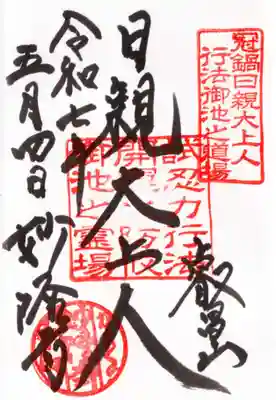 冠鍋日親大上人
行法御池之道場
叡昌山
日親大上人
令和七年
五月四日 妙隆寺
忍力行法
御池之霊場